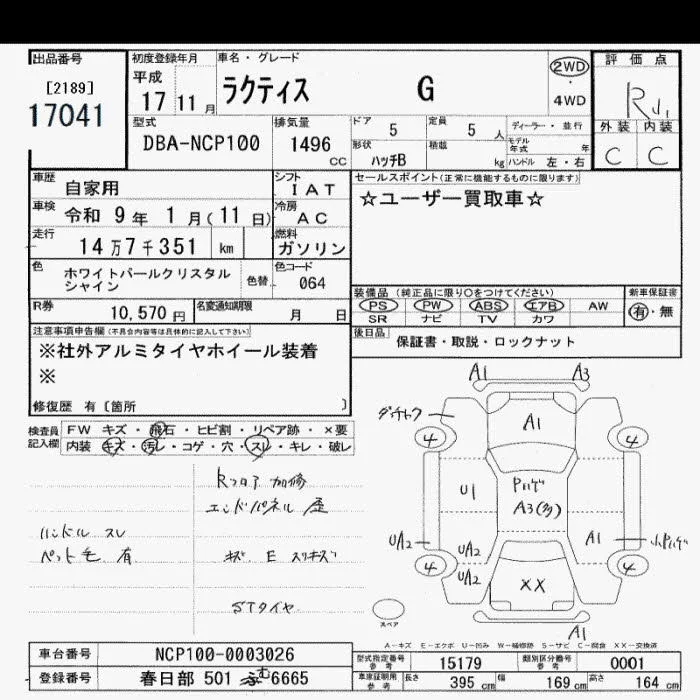 出品番号
[2189]
17041
初度登録年月
平成
17年 11月
車名・グレード
ラクティス G
2WD
・
4WD
評価点
R
外装 内装
C C
型式
DBA-NCP100
排気量
1496
CC
ドア 5
定員 5人
ディーラー・並行
形状 ハッチB
積載 kg
モデル年式 年
ハンドル 左・右
車歴 自家用
シフト
IAT
車検 令和 9年 1月(11日)
冷房
AC
走行 14万7千351 km
燃料
ガソリン
色 ホワイトパールクリスタルシャイン
色替
色コード
064
R券 10,570円
名変通知期限 月 日
セールスポイント(正常に機能するものに限ります)
☆ユーザー買取車☆
装備品(純正品に限り○をつけてください)
PS PW ABS エアB AW
SR ナビ TV カワ
新車保証書
有・無
後日品 保証書・取説・ロックナット
注意事項申告欄(不具合内容等は具体的に記入して下さい)
※社外アルミタイヤホイール装着
※
修復歴 有〔箇所 〕
検査員記入欄
FW キズ・飛石・ヒビ割・リペア跡・×要
内装 キズ・汚レ・コゲ・穴・スレ・キレ・破レ
Rフロア 加修
エンドパネル 歪
ハンドル スレ
ペット毛 有
キズ E スリキズ
STタイヤ
A1 A3
4 A1 4
U1 Pハゲ
A3(多)
UA2 UA2 A1 小Pハゲ
4 UA2 4
XX
スペア
A1
A-キズ E-エクボ U-凹み W-補修跡 S-サビ C-腐食 XX-交換済
車台番号 NCP100-0003026
登録番号 春日部 501 む 6665
型式指定番号 参考 15179
類別区分番号 参考 0001
車庫証明用 参考 長さ 395 cm 幅 169 cm 高さ 164 cm